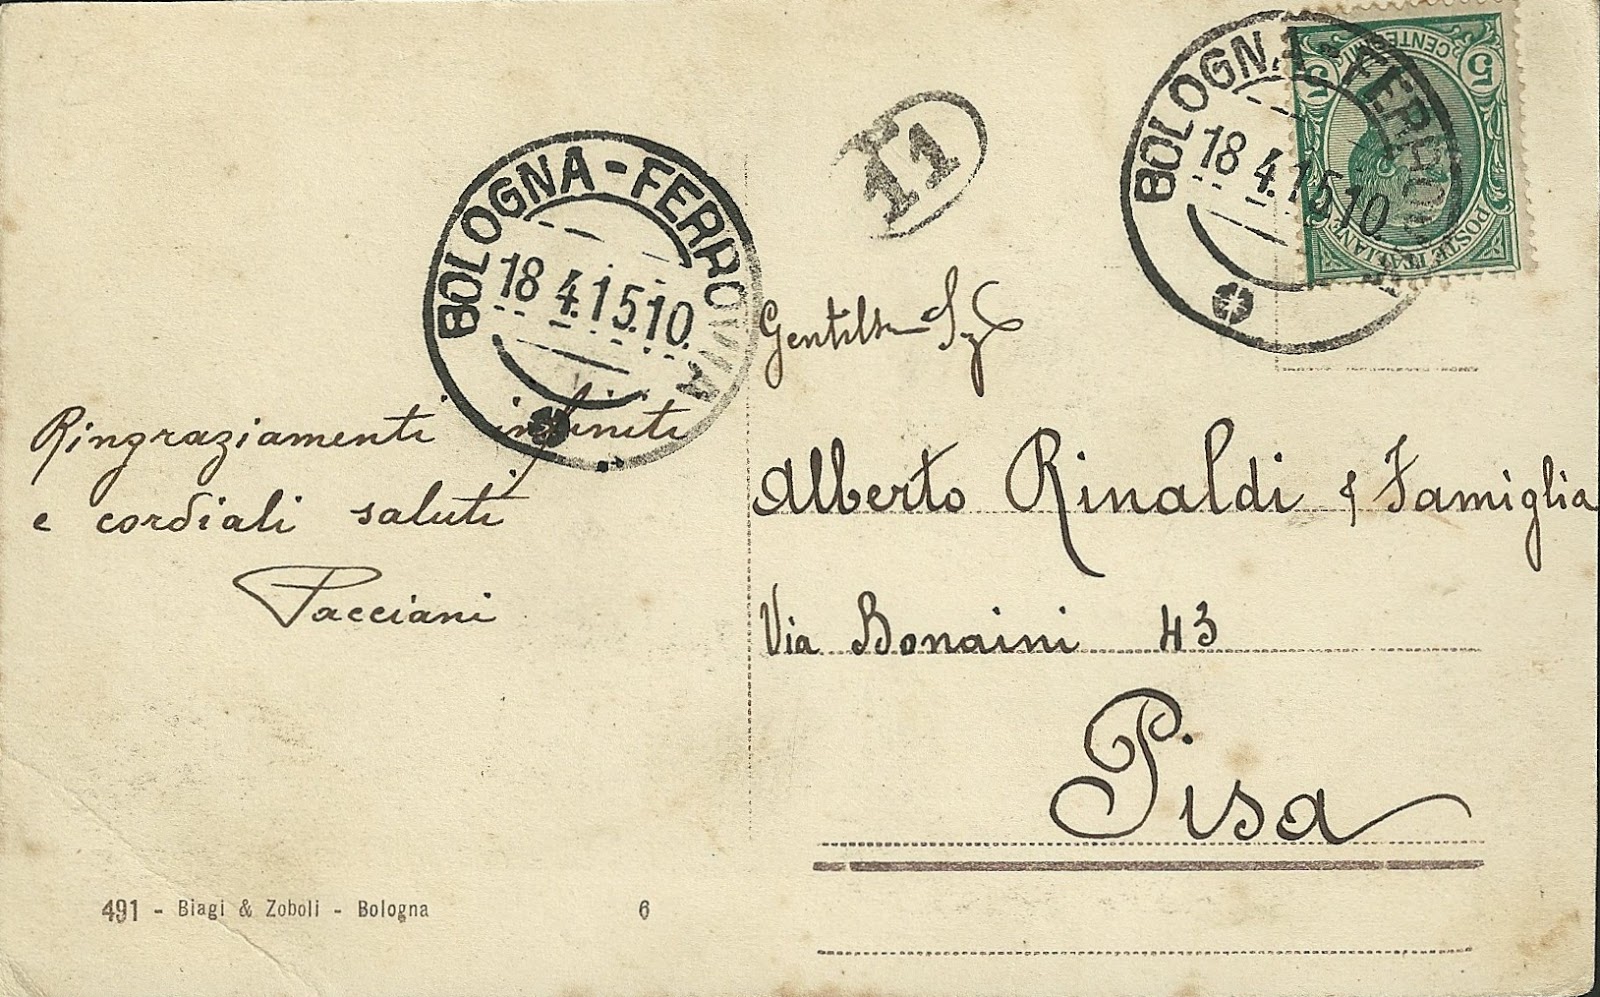 BOLOGNA-FERROVIA
18 4.15.10
11
BOLOGNA-FERROVIA
18 4.15 10
5 CENTESIMI 5
POSTE ITALIANE
Ringraziamenti infiniti
e cordiali saluti
Pacciani
Alberto Rinaldi & Famiglia
Via Bonaini 43
Pisa
491 - Biagi & Zoboli - Bologna
6